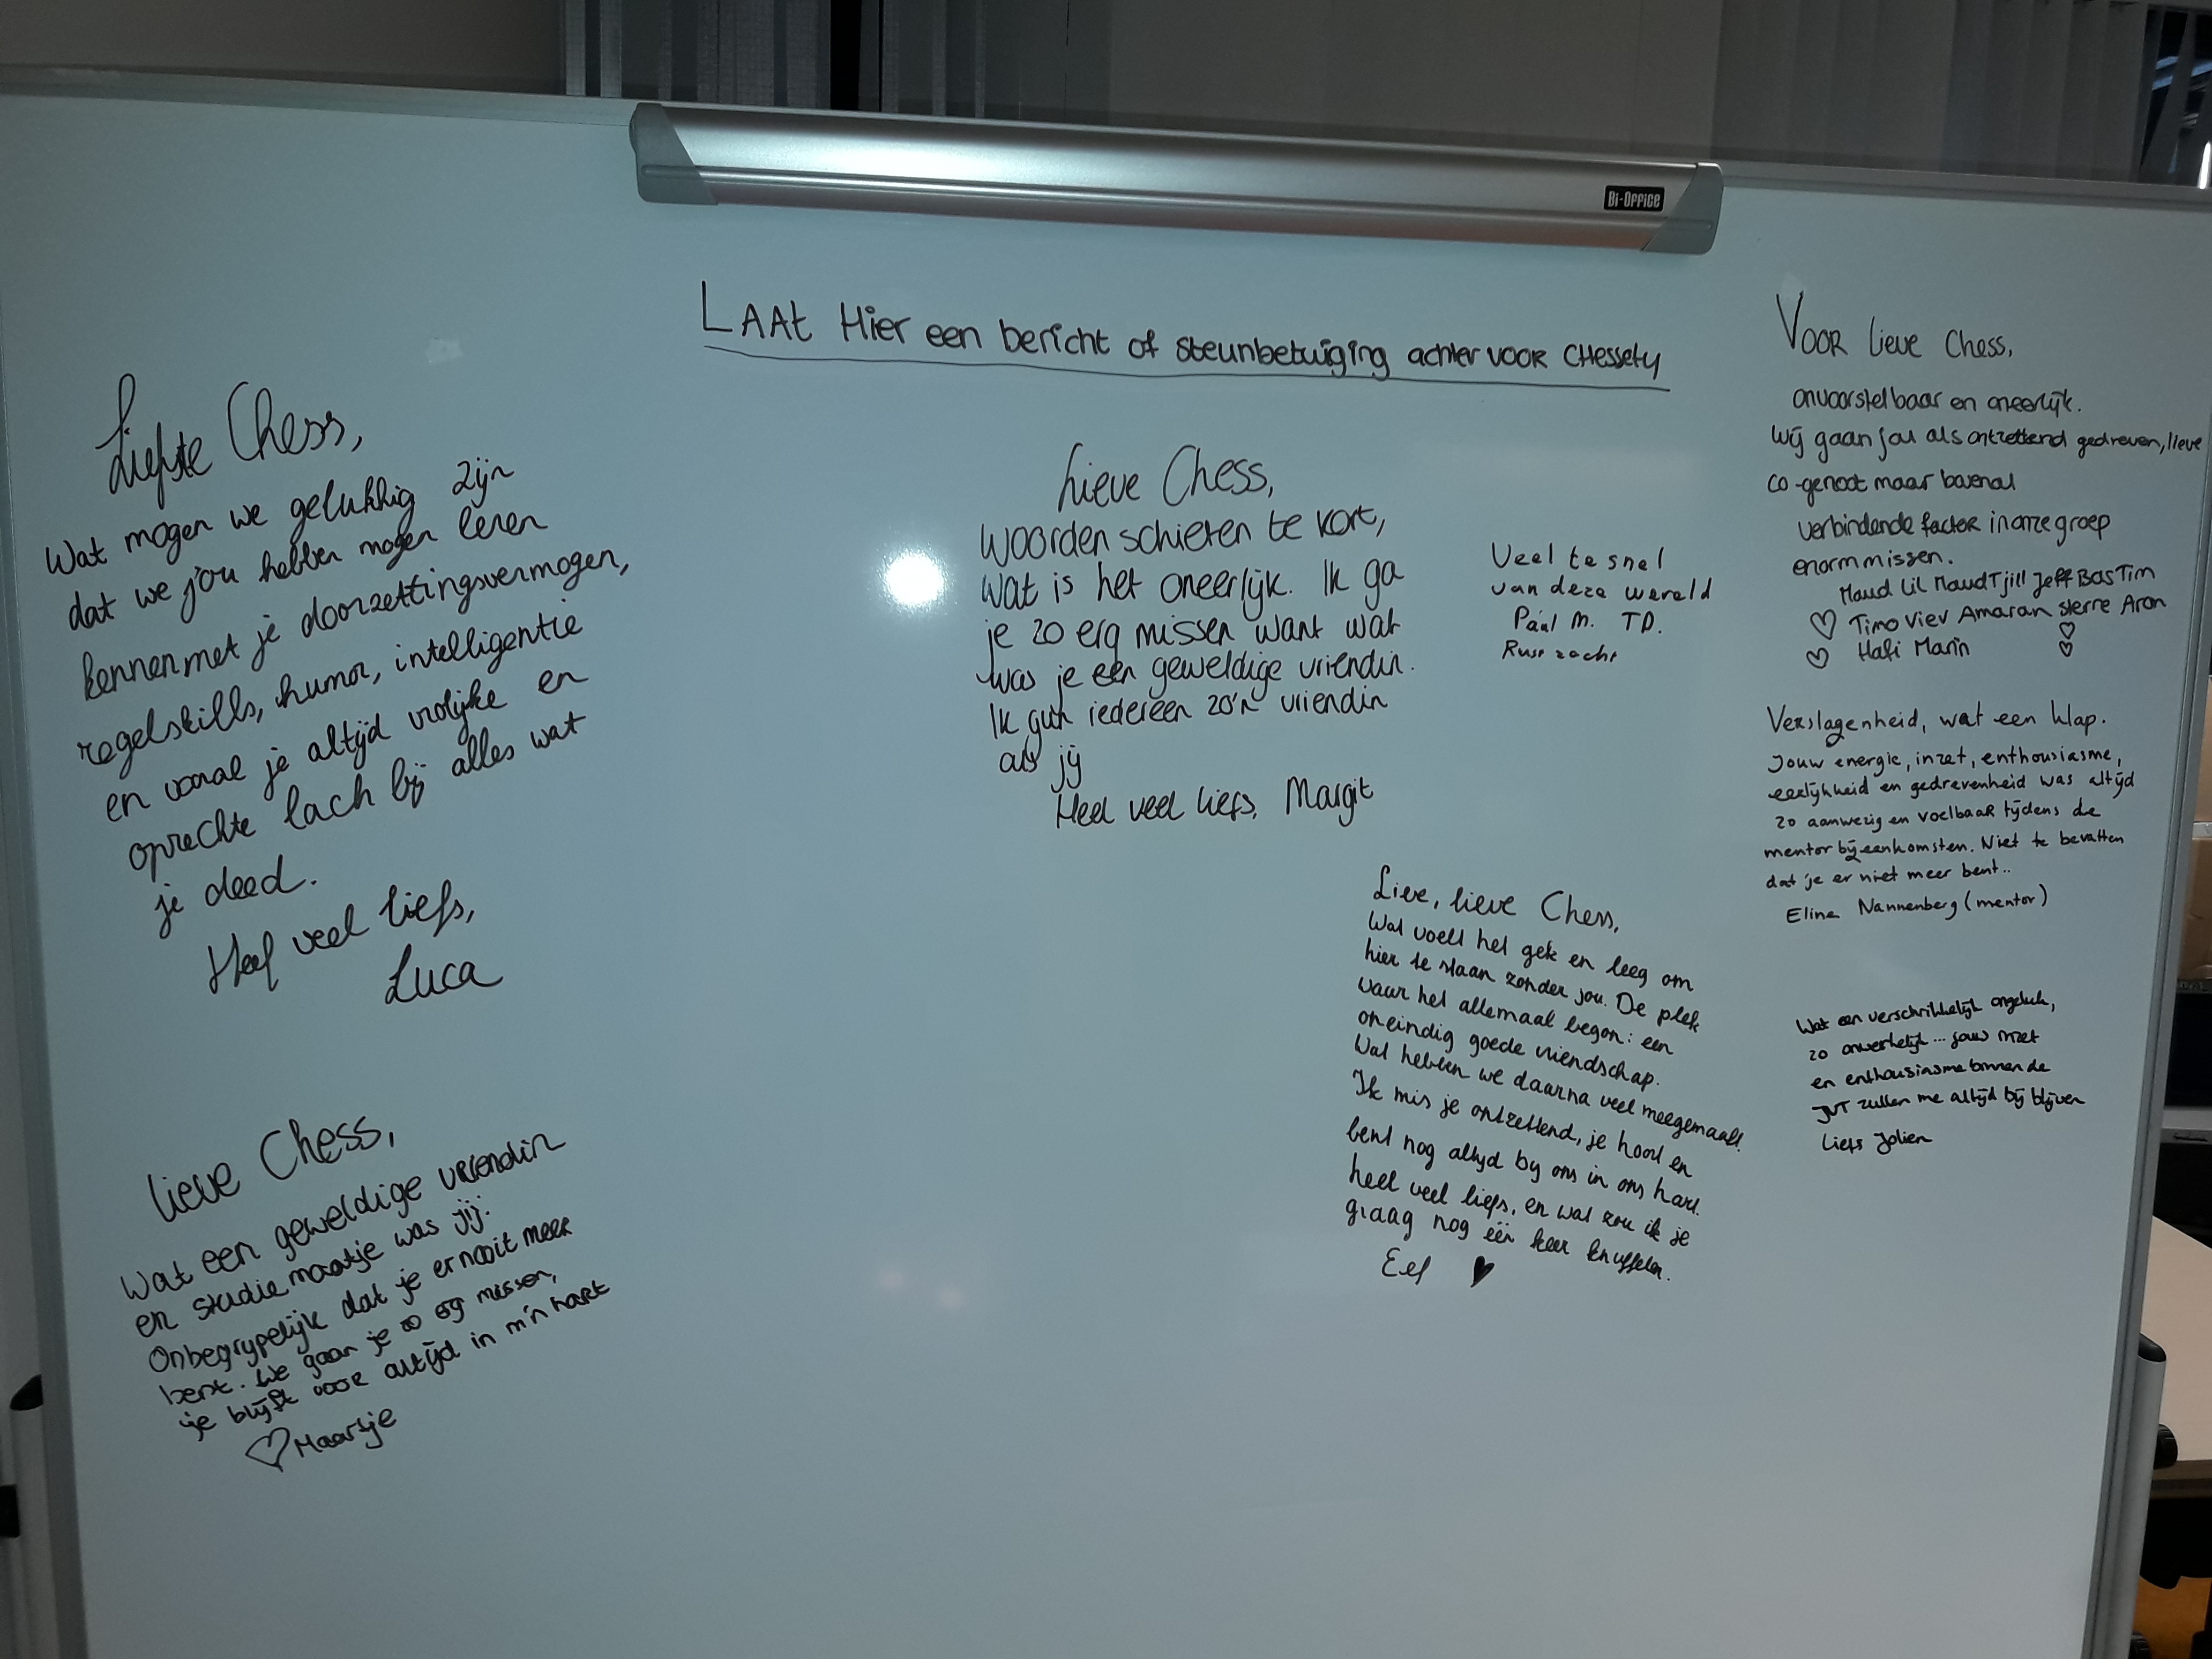 Bi-Office
LAAt Hier een bericht of steunbetuiging achter voor CHessety
Liefste Chess,
Wat mogen we gelukkig zijn
dat we jou hebben mogen leren
kennen met je doorzettingsvermogen,
regelskills, humor, intelligentie
en vooral je altijd vrolijke en
oprechte lach bij alles wat
je deed.
Heel veel liefs,
Luca
lieve Chess,
Wat een geweldige vriendin
en studiemaatje was jij.
Onbegrypelijk dat je er nooit meer
bent. We gaan je zo erg missen,
je blijft voor altijd in m'n hart
♡ Maartje
Lieve Chess,
Woorden schieten te kort,
wat is het oneerlijk. Ik ga
je zo erg missen want wat
was je een geweldige vriendin.
Ik gun iedereen zo'n vriendin
als jij
Heel veel liefs, Margit
Veel te snel
van deze wereld
Paul M. TD.
Rust zacht
Lieve, lieve Chess,
Wat voelt het gek en leeg om
hier te staan zonder jou. De plek
waar het allemaal begon: een
oneindig goede vriendschap.
Wat hebben we daarna veel meegemaakt.
Ik mis je ontzettend, je hoort en
bent nog altyd by ons in ons hart.
heel veel liefs, en wat zou ik je
graag nog één keer knuffelen.
Eef ♥
VOOR lieve Chess,
onvoorstelbaar en oneerlijk.
Wij gaan jou als ontzettend gedreven, lieve
co-genoot maar bovenal
verbindende factor in onze groep
enorm missen.
Maud Lil Maud Tjill Jeff Bas Tim
♡ Timo Viev Amaran sterre Aron
♡ Hafi Marin ♡ ♡
Verslagenheid, wat een klap.
Jouw energie, inzet, enthousiasme,
eerlijkheid en gedrevenheid was altijd
zo aanwezig en voelbaar tijdens de
mentor bijeenkomsten. Niet te bevatten
dat je er niet meer bent..
Eline Nannenberg (mentor)
Wat een verschrikkelijk ongeluk,
zo onwerkelijk... jouw inzet
en enthousiasme binnen de
JVT zullen me altijd bij blijven
Liefs Jolien